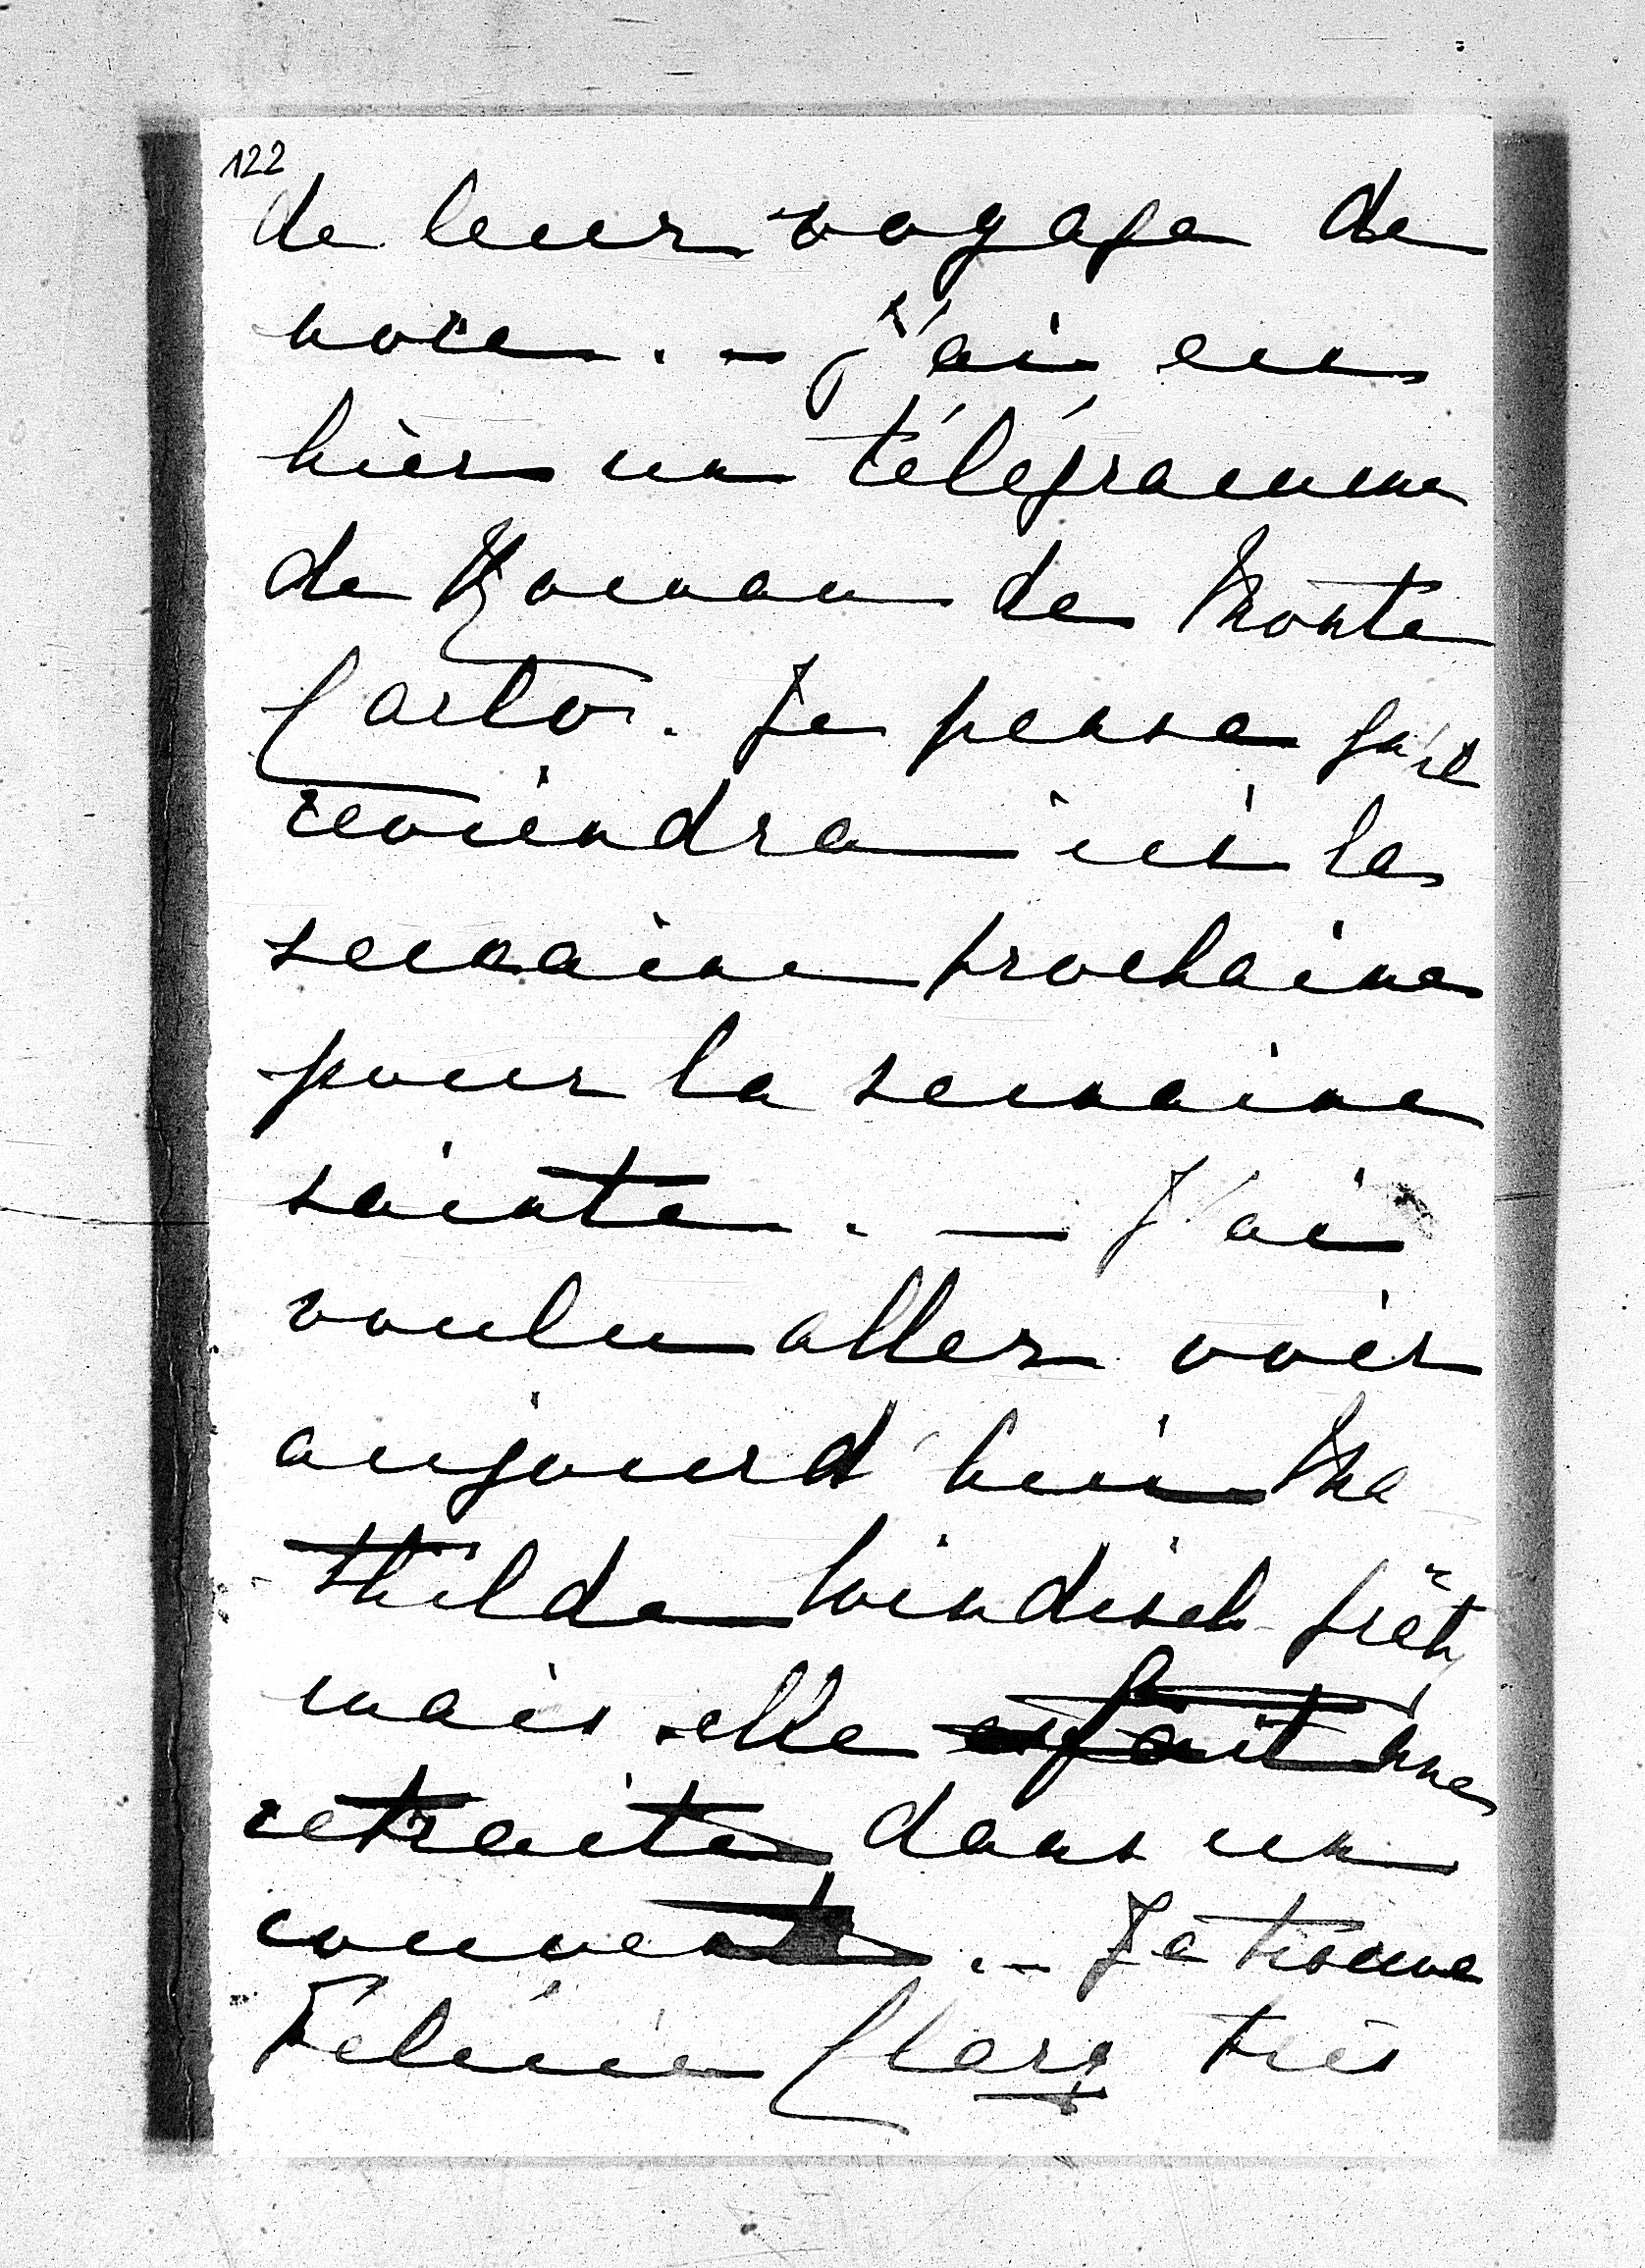 122
de leur voyage de
noce. - J'ai eu
hier un télégramme
de Roman de Monte
Carlo. Je pense qu'il
reviendra ici la
semaine prochaine
pour la semaine
sainte. - J'ai
voulu aller voir
aujourd'hui Ma
thilde Windisch-grätz
mais elle fait une
retraite dans un
couvent. - Je trouve
Félicie Clary très